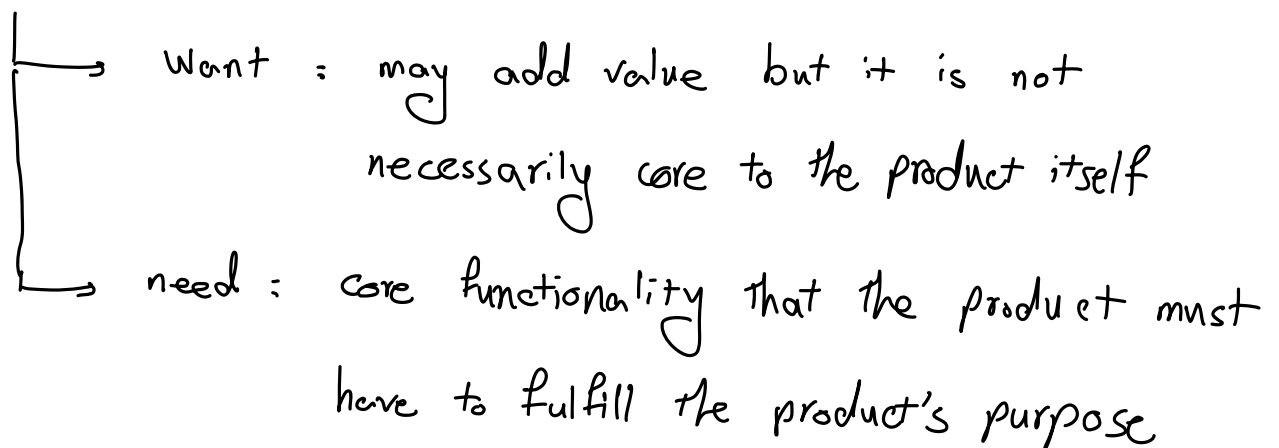 Want : may add value but it is not
necessarily core to the product itself
need : core functionality that the product must
have to fulfill the product's purpose